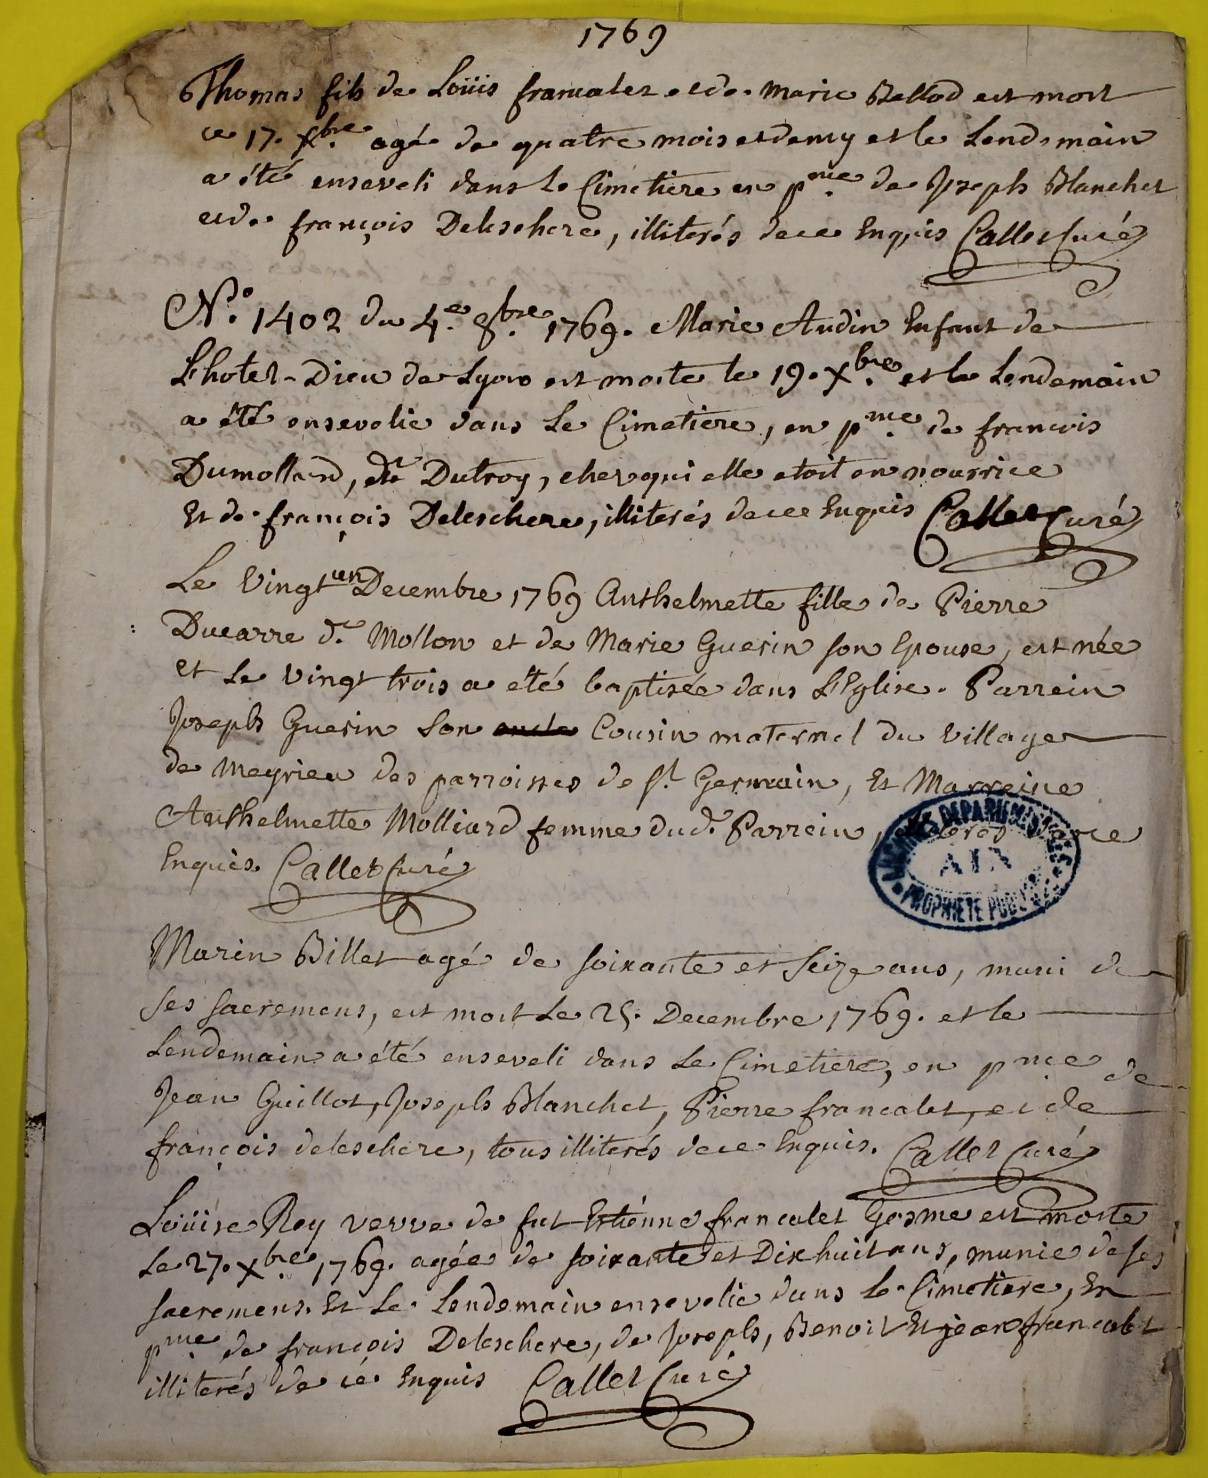 1769
Thomas fils de Loüis francalet et de Marie Bellod est mort
ce 17. Xbre. agé de quatre mois et demy et le Lendemain
a été enseveli dans le Cimetiere en pnce. de Joseph Blanchet
et de françois Deleschere, illiterés de ce Enquis Callet Curé
N.o 1402 du 4.e 8bre. 1769. Marie Audin Enfant de
L'hotel-Dieu de Lyon est morte le 19. Xbre. et le Lendemain
a été ensevelie dans Le Cimetiere, en pnce. de francois
Dumollard, dit Dutroy, chez qui elle etoit en nourrice
Et de françois Deleschere, illiterés de ce Enquis Callet Curé
Le Vingt un Decembre 1769 Anthelmette fille de Pierre
Ducarre d.t Mollon et de Marie Guerin son Epouse, est née
et Le Vingt trois a été baptisée dans L'Eglise. Parrein
Joseph Guerin Son oncle Cousin maternel du Village
de Meyrieu des parroisses de St. Germain, Et Marreine
Anthelmette Molliard femme dud.t Parrein,
Enquis. Callet Curé
ARCHIVES DEPARTEMENTALES
AIN
PROPRIÉTÉ PUBLIQUE
Marin Billet agé de soixante et Seize ans, muni de
ses sacremens, est mort Le 25. Decembre 1769. et le
Lendemain a été enseveli dans Le Cimetiere, en pnce de
Jean Guillot, Joseph Blanchet, Pierre francalet, et de
françois deleschere, tous illiterés de ce Enquis. Callet Curé
Loüise Roy vevve de fut Estiénne francalet Gosme est morte
Le 27. Xbre. 1769. agée de soixante et Dix huit ans, munie de ses
sacremens. Et Le Lendemain ensevelie dans le Cimetiere, En
pnce. de françois Deleschere, de Joseph, Benoit Et jean francalet
illiterés de cé Enquis Callet Curé